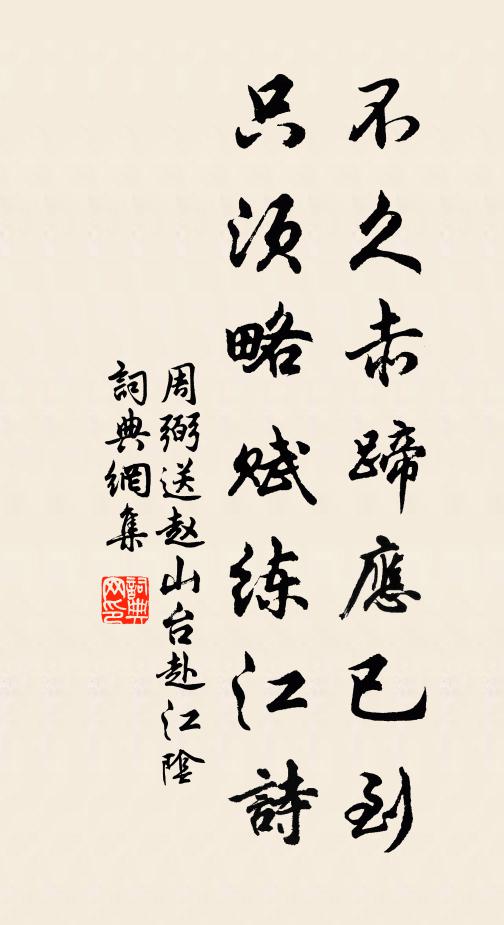 不久赤蹄應已到
只须略赋练江詩
周弼送赵山台赴江陰
詞典網集
詞典網印